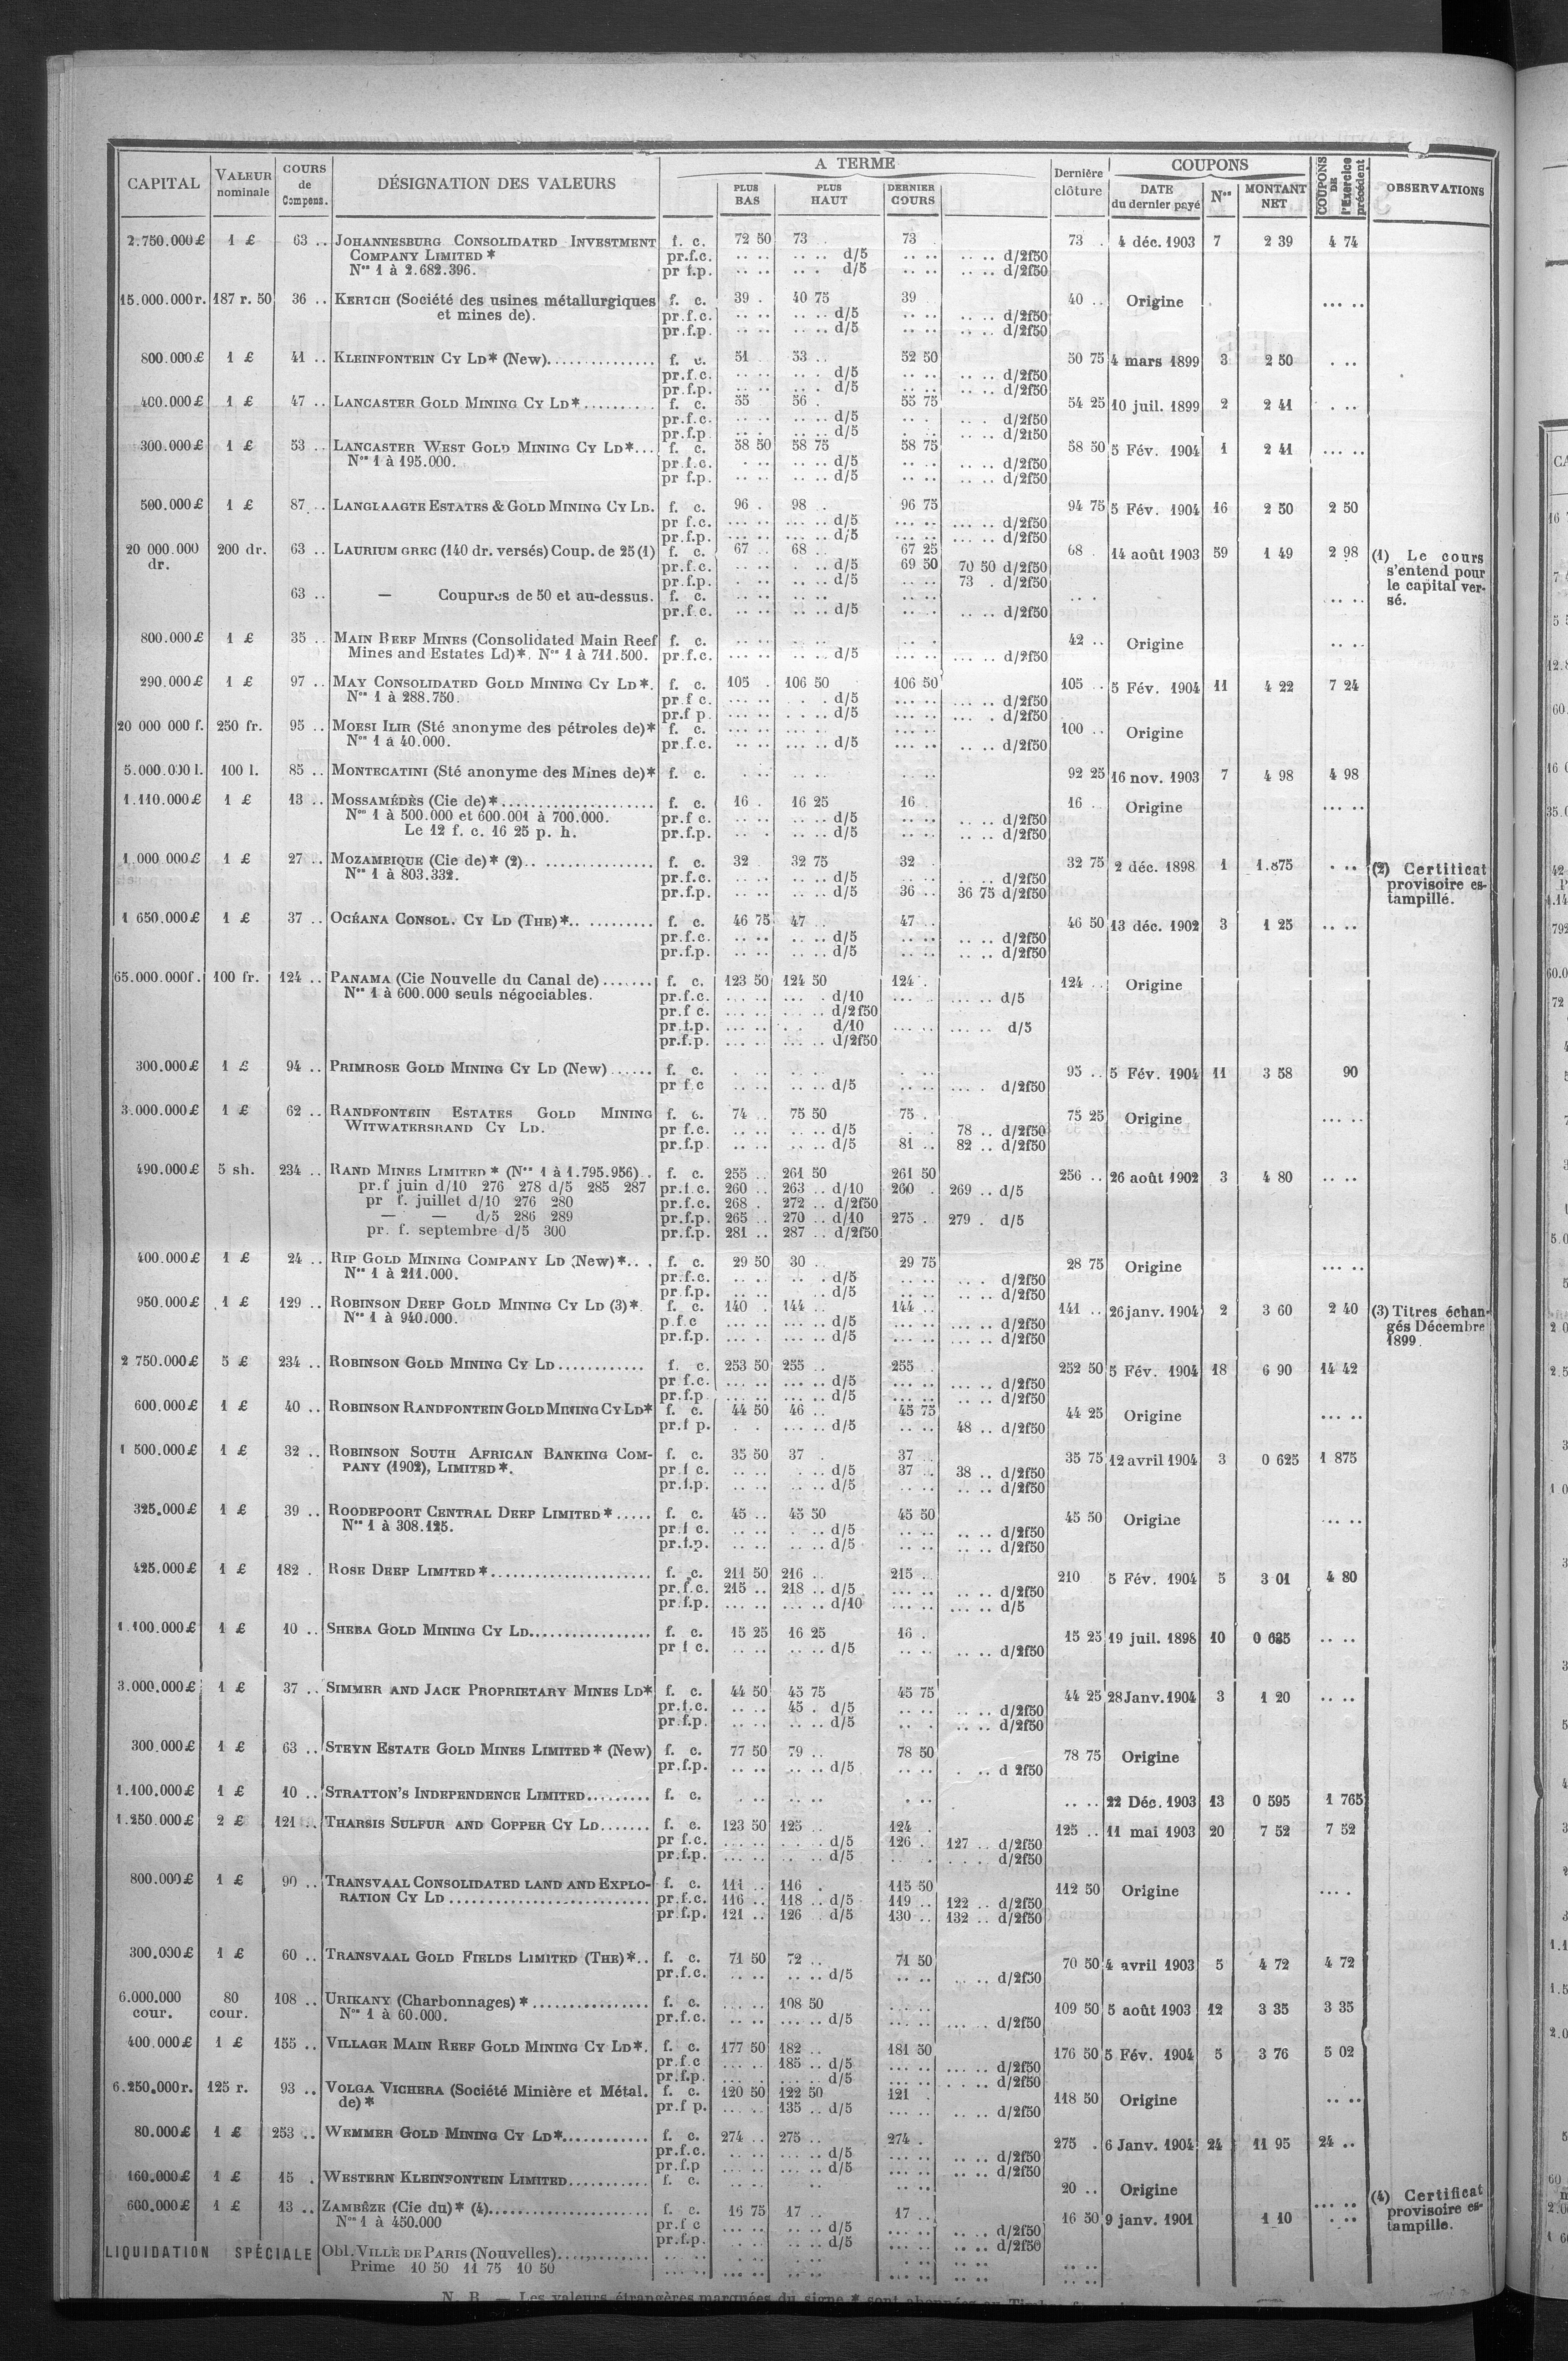 CAPITAL VALEUR nominale COURS de Compens. DÉSIGNATION DES VALEURS A TERME PLUS BAS PLUS HAUT DERNIER COURS Dernière clôture COUPONS DATE du dernier payé Nos MONTANT NET COUPONS DE l'Exercice précédent OBSERVATIONS
2.750.000 £ 1 £ 63 .. JOHANNESBURG CONSOLIDATED INVESTMENT f. c. 72 50 73 . 73 . 73 . 4 déc. 1903 7 2 39 4 74
COMPANY LIMITED * pr.f.c. .. .. .. .. d/5 .. .. .. .. d/2f50
Nos 1 à 2.682.396. pr f.p. .. .. .. . d/5 .. .. .. .. d/2f50
15.000.000 r. 187 r. 50 36 .. KERTCH (Société des usines métallurgiques f. c. 39 . 40 75 39 40 .. Origine ... ..
et mines de). pr.f.c. .. .. .. .. d/5 .. .. .. .. d/2f50
pr.f.p. .. .. .. .. d/5 .. .. .. .. d/2f50
800.000 £ 1 £ 41 .. KLEINFONTEIN CY LD* (New).............. f. c. 51 53 .. 52 50 50 75 4 mars 1899 3 2 50 . ..
pr.f.c. .. .. .. . d/5 .. .. .. .. d/2f50
pr.f.p. .. .. .. . d/5 .. .. .. .. d/2f50
400.000 £ 1 £ 47 .. LANCASTER GOLD MINING CY LD*.......... f. c. 55 56 . 55 75 54 25 10 juil. 1899 2 2 41 . ..
pr.f.c. .. .. .. .. d/5 .. . .. . d/2f50
pr.f.p .. .. .. .. d/5 .. .. .. .. d/2f50
300.000 £ 1 £ 53 .. LANCASTER WEST GOLD MINING CY LD*... f. c. 58 50 58 75 58 75 58 50 5 Fév. 1904 1 2 41 ... ..
Nos 1 à 195.000. pr.f.c. . .. .. .. d/5 .. . .. .. d/2f50
pr f.p. .. .. .. .. d/5 .. .. .. .. d/2f50
500.000 £ 1 £ 87 .. LANGLAAGTE ESTATES & GOLD MINING CY LD. f. c. 96 . 98 . 96 75 94 75 5 Fév. 1904 16 2 50 2 50
pr f.c. ... .. ... .. d/5 ... .. ... .. d/2f50
pr.f.p. ... .. ... .. d/5 ... .. ... .. d/2f50
20 000.000 dr. 200 dr. 63 .. LAURIUM GREC (140 dr. versés) Coup. de 25 (1) f. c. 67 .. 68 .. 67 25 68 . 14 août 1903 59 1 49 2 98 (1) Le cours
pr.f.c. .. .. . .. d/5 69 50 70 50 d/2f50 s'entend pour
pr.f.p. . .. .. .. d/5 .. .. 73 . d/2f50 le capital ver-
63 .. — Coupures de 50 et au-dessus. f. c. .. .. .. .. .. .. .. . ... .. sé.
pr.f.c. .. .. .. .. d/5 .. . .. .. d/2f50
800.000 £ 1 £ 35 .. MAIN REEF MINES (Consolidated Main Reef f. c. .. .. .. .. .. . 42 .. Origine .. ..
Mines and Estates Ld)*. Nos 1 à 711.500. pr.f.c. ... .. .. .. d/5 ... .. ... .. d/2f50
290.000 £ 1 £ 97 .. MAY CONSOLIDATED GOLD MINING CY LD*. f. c. 105 . 106 50 106 50 105 .. 5 Fév. 1904 11 4 22 7 24
Nos 1 à 288.750. pr f c. ... .. . . d/5 ... .. .. .. d/2f50
pr.f p. ... .. ... .. d/5 ... .. ... . d/2f50
20 000 000 f. 250 fr. 95 .. MOESI ILIR (Sté anonyme des pétroles de)* f. c. ... .. ... .. ... .. 100 .. Origine
Nos 1 à 40.000. pr.f.c. .. .. ... .. d/5 .. .. .. .. d/2f50
5.000.000 l. 100 l. 85 .. MONTECATINI (Sté anonyme des Mines de)* f. c. . .. .. .. .. .. 92 25 16 nov. 1903 7 4 98 4 98
1.110.000 £ 1 £ 13 .. MOSSAMÉDÈS (Cie de)*.................... f. c. 16 . 16 25 16 16 . Origine ... ..
Nos 1 à 500.000 et 600.001 à 700.000. pr.f c. .. .. .. .. d/5 .. .. .. .. d/2f50
Le 12 f. c. 16 25 p. h. pr.f.p. .. . .. .. d/5 .. .. .. .. d/2f50
1.000 000 £ 1 £ 27 .. MOZAMBIQUE (Cie de)* (2).. .............. f. c. 32 32 75 32 . 32 75 2 déc. 1898 1 1.875 . .. (2) Certificat
Nos 1 à 803.332. pr.f.c. .. .. .. .. d/5 .. .. . .. d/2f50 provisoire es-
pr.f.p. .. .. .. .. d/5 36 .. 36 75 d/2f50 tampillé.
1 650.000 £ 1 £ 37 .. OCÉANA CONSOL. CY LD (THE)*.. ......... f. c. 46 75 47 .. 47 .. 46 50 13 déc. 1902 3 1 25 .. ..
pr.f.c. .. .. .. .. d/5 .. .. .. .. d/2f50
pr.f.p. .. .. .. .. d/5 .. .. .. .. d/2f50
65.000.000 f. 100 fr. 124 .. PANAMA (Cie Nouvelle du Canal de)....... f. c. 123 50 124 50 124 . 124 .. Origine
Nos 1 à 600.000 seuls négociables. pr.f.c. ... .. ... . d/10 ... . ... .. d/5
pr.f c. ... .. ... .. d/2f50
pr.f.p. ... .. . . d/10 ... .. ... .. d/5
pr.f.p. ... .. ... .. d/2f50
300.000 £ 1 £ 94 .. PRIMROSE GOLD MINING CY LD (New)...... f. c. . .. .. .. . .. 95 .. 5 Fév. 1904 11 3 58 90
pr f.c .. .. .. .. d/5 .. .. ... . d/2f50
3.000.000 £ 1 £ 62 .. RANDFONTEIN ESTATES GOLD MINING f. c. 74 .. 75 50 75 . 75 25 Origine ... ..
WITWATERSRAND CY LD. pr f.c. .. .. .. .. d/5 . . 78 .. d/2f50
pr.f.p. .. .. .. .. d/5 81 .. 82 .. d/2f50
490.000 £ 5 sh. 234 .. RAND MINES LIMITED * (Nos 1 à 1.795.956).. f. c. 255 .. 261 50 261 50 256 .. 26 août 1902 3 4 80 .. ..
pr.f juin d/10 276 278 d/5 285 287 pr.f.c. 260 .. 263 .. d/10 260 . 269 .. d/5
pr f. juillet d/10 276 280 pr.f.c. 268 . 272 .. d/2f50
— — d/5 286 289 pr.f.p. 265 .. 270 .. d/10 275 . 279 . d/5
pr. f. septembre d/5 300 pr.f.p. 281 .. 287 .. d/2f50
400.000 £ 1 £ 24 .. RIP GOLD MINING COMPANY LD (New)*.. . f. c. 29 50 30 .. 29 75 28 75 Origine ... ..
Nos 1 à 211.000. pr.f.c. .. .. .. . d/5 .. .. .. . d/2f50
pr.f.p. .. .. .. .. d/5 .. .. .. .. d/2f50
950.000 £ 1 £ 129 .. ROBINSON DEEP GOLD MINING CY LD (3)*. f. c. 140 . 144 .. 144 .. 141 .. 26 janv. 1904 2 3 60 2 40 (3) Titres échan-
Nos 1 à 940.000. p.f c ... .. ... .. d/5 ... .. ... .. d/2f50 gés Décembre
pr.f.p. ... . ... .. d/5 ... .. ... .. d/2f50 1899.
2 750.000 £ 5 £ 234 .. ROBINSON GOLD MINING CY LD............ f. c. 253 50 255 .. 255 . 252 50 5 Fév. 1904 18 6 90 14 42
pr f.c. ... .. ... .. d/5 ... .. ... .. d/2f50
pr.f.p ... .. ... .. d/5 ... .. .. .. d/2f50
600.000 £ 1 £ 40 .. ROBINSON RANDFONTEIN GOLD MINING CY LD* f. c. 44 50 46 .. 45 75 44 25 Origine ... ..
pr.f p. . . ... .. d/5 .. .. 48 .. d/2f50
1 500.000 £ 1 £ 32 .. ROBINSON SOUTH AFRICAN BANKING COM- f. c. 35 50 37 . 37 .. 35 75 12 avril 1904 3 0 625 1 875
PANY (1902), LIMITED *. pr.f c. .. .. . .. d/5 37 .. 38 .. d/2f50
pr.f.p. .. .. .. .. d/5 .. .. .. .. d/2f50
325.000 £ 1 £ 39 .. ROODEPOORT CENTRAL DEEP LIMITED *..... f. c. 45 .. 45 50 45 50 45 50 Origine ... ..
Nos 1 à 308.125. pr.f c. .. .. . .. d/5 .. .. .. .. d/2f50
pr.f.p. .. .. .. .. d/5 .. .. .. .. d/2f50
425.000 £ 1 £ 182 . ROSE DEEP LIMITED *..................... f. c. 211 50 216 .. 215 .. 210 5 Fév. 1904 5 3 01 4 80
pr.f.c. 215 .. 218 .. d/5 ... .. .. .. d/2f50
pr.f.p. ... .. ... .. d/10 ... .. ... .. d/5
1.100.000 £ 1 £ 10 .. SHEBA GOLD MINING CY LD................ f. c. 15 25 16 25 16 . 15 25 19 juil. 1898 10 0 635 .. ..
pr f c. .. .. .. .. d/5 .. .. .. .. d/2f50
3.000.000 £ 1 £ 37 .. SIMMER AND JACK PROPRIETARY MINES LD* f. c. 44 50 45 75 45 75 44 25 28 Janv. 1904 3 1 20 .. ..
pr.f.c. .. .. 45 . d/5 .. .. .. .. d/2f50
pr.f.p. .. .. .. .. d/5 .. . .. .. d/2f50
300.000 £ 1 £ 63 .. STEYN ESTATE GOLD MINES LIMITED * (New) f. c. 77 50 79 .. 78 50 78 75 Origine
pr.f.p. .. .. .. .. d/5 .. .. . .. d 2f50
1.100.000 £ 1 £ 10 .. STRATTON'S INDEPENDENCE LIMITED......... f. c. . .. .. .. . .. .. .. 22 Déc. 1903 13 0 595 1 765
1.250.000 £ 2 £ 121 .. THARSIS SULFUR AND COPPER CY LD....... f. c. 123 50 125 .. 124 . 125 .. 11 mai 1903 20 7 52 7 52
pr f.c. ... .. . . d/5 126 . 127 .. d/2f50
pr.f.p. ... .. .. .. d/5 .. . . . . d/2f50
800.000 £ 1 £ 90 .. TRANSVAAL CONSOLIDATED LAND AND EXPLO- f. c. 111 .. 116 . 115 50 112 50 Origine ... .
RATION CY LD .......................... pr.f.c. 116 .. 118 .. d/5 119 .. 122 .. d/2f50
pr.f.p. 121 .. 126 . d/5 130 .. 132 .. d/2f50
300.000 £ 1 £ 60 .. TRANSVAAL GOLD FIELDS LIMITED (THE)*.. f. c. 71 50 72 .. 71 50 70 50 4 avril 1903 5 4 72 4 72
pr.f.c. .. .. .. .. d/5 .. .. . .. d/2f50
6.000.000 cour. 80 cour. 108 .. URIKANY (Charbonnages)*................ f. c. ... .. 108 50 ... .. 109 50 5 août 1903 12 3 35 3 35
Nos 1 à 60.000. pr.f.c. .. .. ... .. d/5 ... .. ... . d/2f50
400.000 £ 1 £ 155 .. VILLAGE MAIN REEF GOLD MINING CY LD*. f. c. 177 50 182 .. 181 50 176 50 5 Fév. 1904 5 3 76 5 02
pr.f.c ... . 185 .. d/5 ... .. ... .. d/2f50
pr.f.p. ... .. ... .. d/5 ... .. . .. d/2f50
6.250.000 r. 125 r. 93 .. VOLGA VICHERA (Société Minière et Métal. f. c. 120 50 122 50 121 . 118 50 Origine .. ..
de)* pr.f p. ... .. 135 .. d/5 ... .. .. .. d/2f50
80.000 £ 1 £ 253 .. WEMMER GOLD MINING CY LD*............ f. c. 274 .. 275 .. 274 . 275 . 6 Janv. 1904 24 11 95 24 ..
pr.f.c. .. .. ... .. d/5 ... .. .. .. d/2f50
pr.f.p ... .. ... .. d/5 ... .. .. .. d/2f50
160.000 £ 1 £ 15 . WESTERN KLEINFONTEIN LIMITED........... f. c. .. .. .. .. .. 20 .. Origine ... ..
600.000 £ 1 £ 13 .. ZAMBÈZE (Cie du)* (4)...................... f. c. 16 75 17 .. 17 .. 16 50 9 janv. 1901 1 10 . .. (4) Certificat
Nos 1 à 450.000 pr.f c ... .. .. .. d/5 ... .. .. .. d/2f50 provisoire es-
pr.f.p. ... .. .. .. d/5 ... .. .. .. d/2f50 tampille.
LIQUIDATION SPÉCIALE Obl. VILLE DE PARIS (Nouvelles)............. .. .. . .. .. .. .. .. .. ..
Prime 10 50 11 75 10 50 ... .. ... .. .. .. ... .. .. .. .. ..
N. B. — Les valeurs étrangères marquées du signe * sont abonnées au